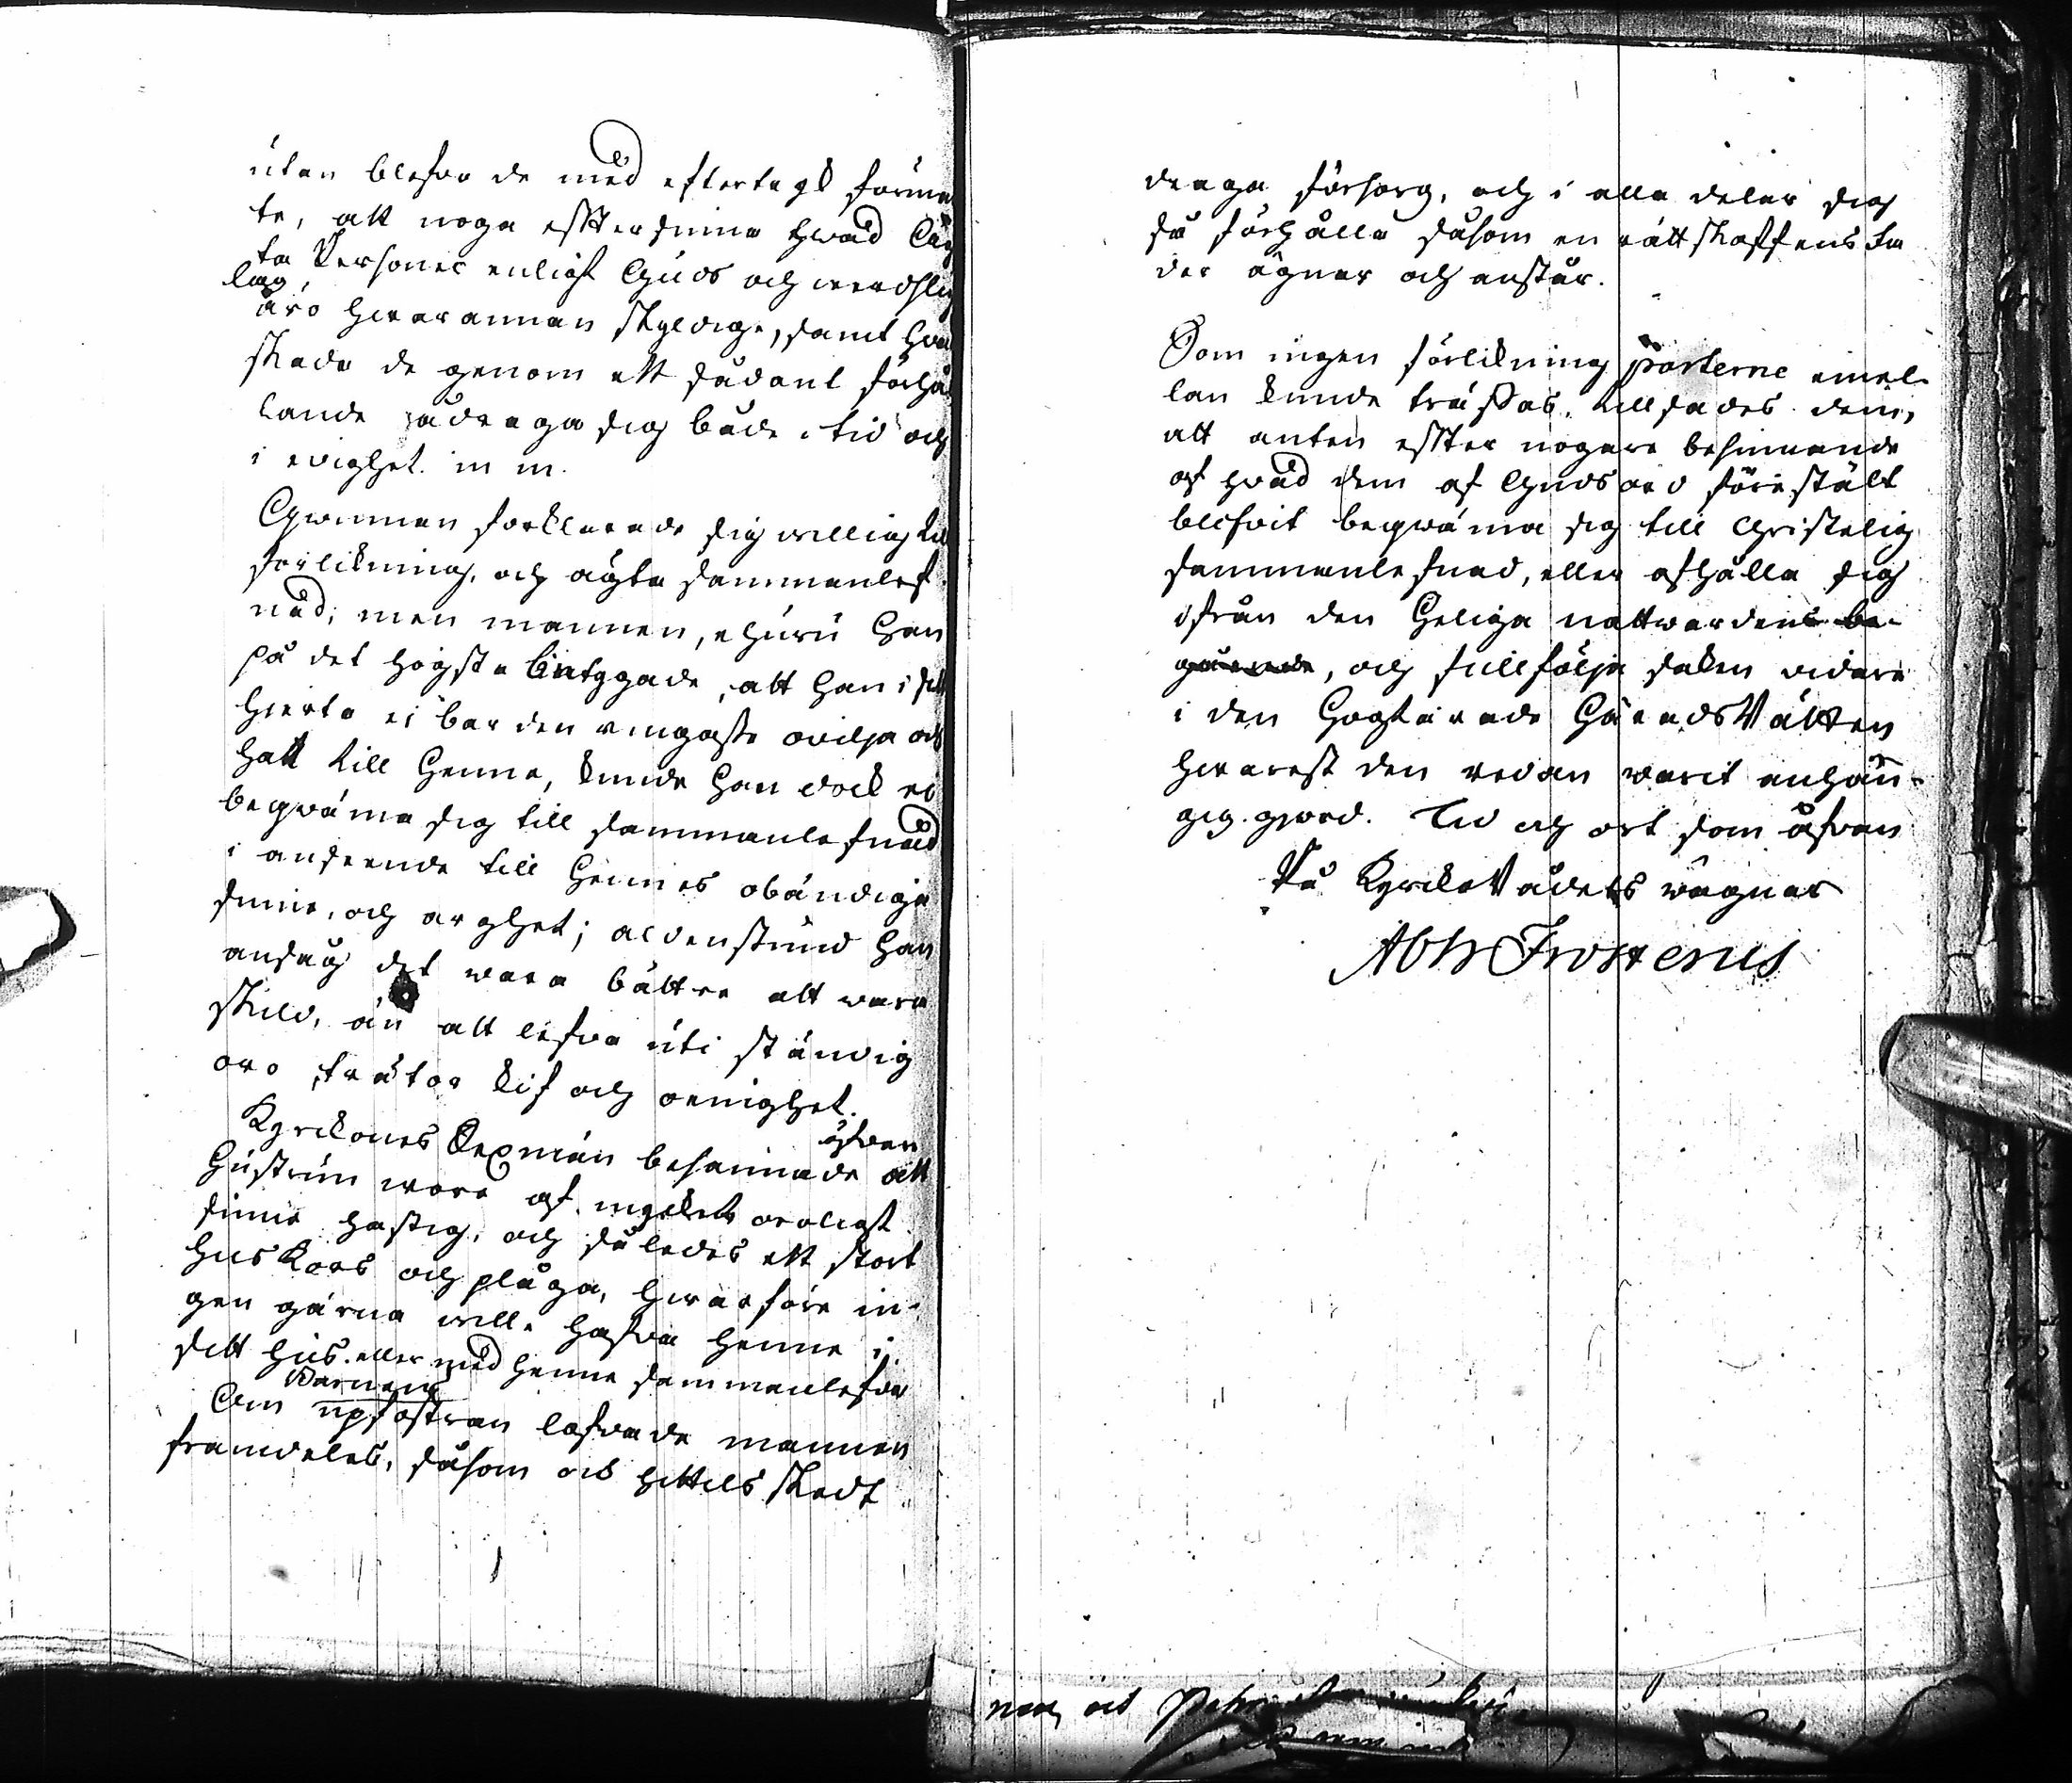 utan blefvo de med eftertagk förma
te, att noga efftersinna hwad Äg
ta Personer enligt Guds och werdslig
lag,
äro hwarannan skyldige, samt hva
skada de genom ett sådant förhål
lande ådraga sig både i tid och
i evighet m m.
Qwinnan forklarade sig willig till
förlikning, och ägta sammanlef
nad; men mannen, ehuru han
på det högsta betygade, att han i sitt
hierta ei bar den ringaste ovilja och
hatt till henne, kunde han dock ei
beqväma sig till sammanlefnad
i anseende till hennes obändiga
sinne, och arghet; aldenstund han
ansåg det wara bättre att wara
skild, än att lefva uti ständig
oro, trätor kif och oenighet.
Kyrkones Sexmän besannade äfwen att
hustrun wore af mycket oroligt
sinne hastig, och således ett stort
huskors och plåga, hwarföre in-
gen gärna wille hafva henne i
sitt hus. eller med henne sammanlefva
Om Barnens upfostran lofvade mannen
framdeles, såsom ock hittils skedt
draga försorg, och i alla delar sig
så förhålla såsom en rättskaffens fa
der ägnar och anstår.
Som ingen förlikning parterne emel-
lan kunde träffas, tillsades dem,
att anten effter nogare besinnande
af hvad dem af Guds ord förestält
blifvit beqwäma sig till Christelig
sammanlefnad, eller afhålla sig
ifrån den Heliga nattwardens be-
gående, och fullfölja saken vidare
i den Hogtärade HäradsRätten
hwarest den redan warit anhän-
gig gjord. Tid och ort som åfvan
På KyrckoRådets wägnar
Abh Frosterus